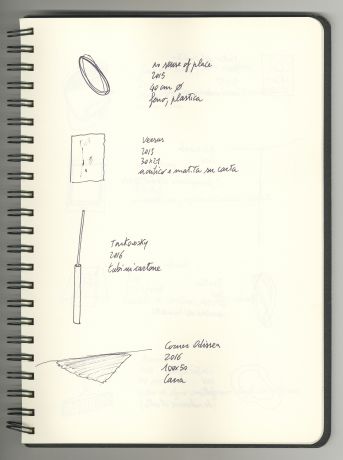 no sense of place
2015
40 cm ø
ferro, plastica
Versus
2015
30x21
e matita su carta
Tarkovsky
2016
tubi in cartone
Corner Odissea
2016
100x50
Carta